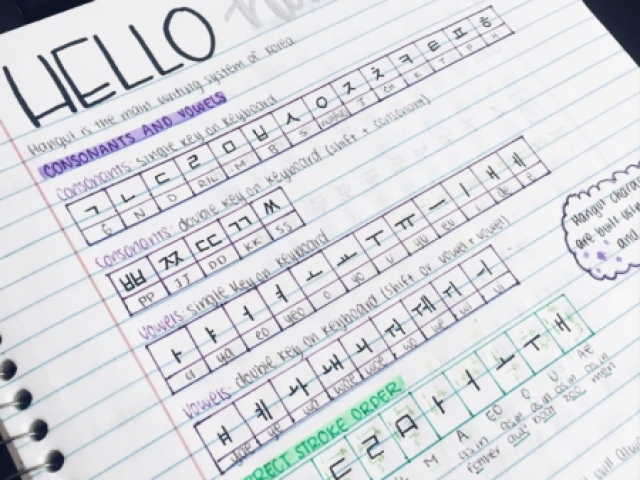 HELLO
Hangul is the main writing system of Korea
CONSONANTS AND VOWELS
consonants: single key on keyboard
ㄱ ㄴ ㄷ ㄹ ㅁ ㅂ ㅅ ㅇ ㅈ ㅊ ㅋ ㅌ ㅍ ㅎ
G N D R/L M B S J CH K T P H
consonants: double key on keyboard (shift + consonant)
ㅃ ㅉ ㄸ ㄲ ㅆ
PP JJ DD KK SS
vowels: single key on keyboard
ㅏ ㅑ ㅓ ㅕ ㅗ ㅛ ㅜ ㅠ ㅡ ㅣ ㅐ ㅔ
a ya eo yeo o yo u yu eu i ae e
vowels: double key on keyboard (shift or vowel + vowel)
ㅒ ㅖ ㅘ ㅙ ㅚ ㅝ ㅞ ㅟ ㅢ
yae ye wa wae
RRECT STROKE ORDER
ㄷ ㄹ ㅁ ㅏ ㅓ ㅗ ㅜ ㅐ
M A EO O U AE
as in as in as in as in as in
father boat zoo
Hangul
are built
and
will